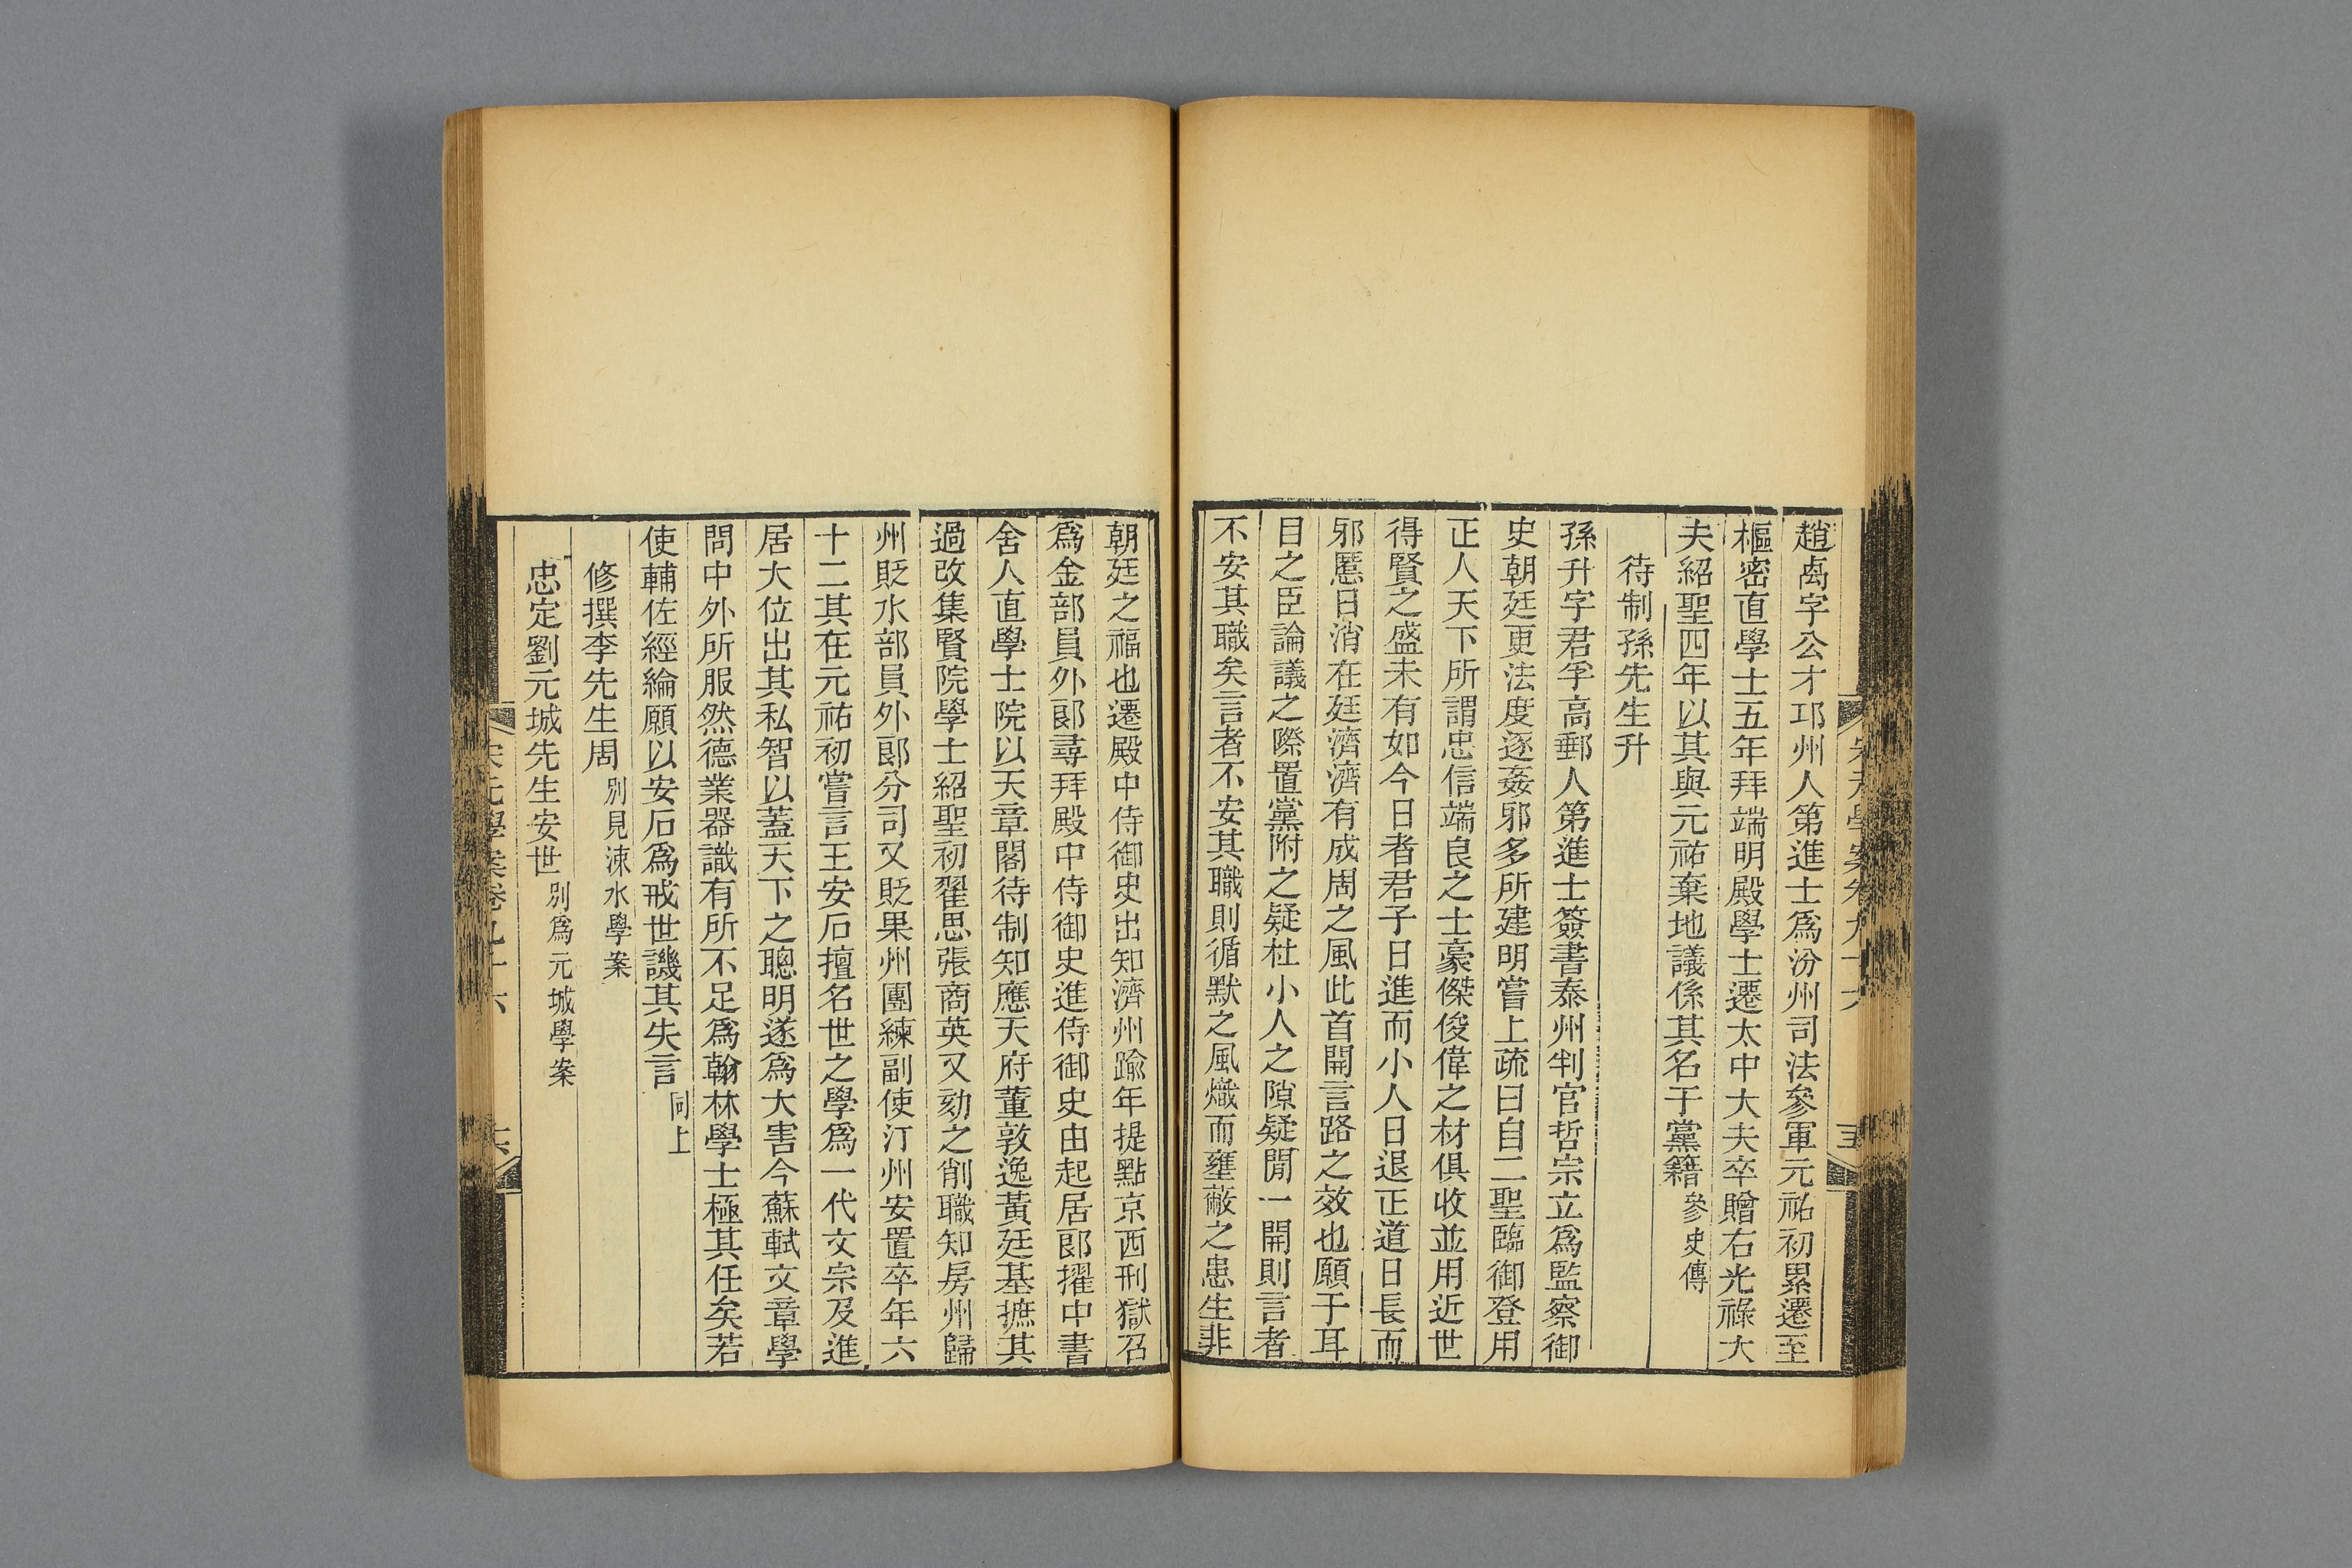 宋元學案卷九十六
趙卨字公才邛州人第進士爲汾州司法參軍元祐初累遷至
樞密直學士五年拜端明殿學士遷太中大夫卒贈右光祿大
夫紹聖四年以其與元祐棄地議係其名于黨籍參史傳
待制孫先生升
孫升字君孚高郵人第進士簽書泰州判官哲宗立爲監察御
史朝廷更法度逐姦邪多所建明嘗上疏曰自二聖臨御登用
正人天下所謂忠信端良之士豪傑俊偉之材俱收並用近世
得賢之盛未有如今日者君子日進而小人日退正道日長而
邪慝日消在廷濟濟有成周之風此首開言路之效也願于耳
目之臣論議之際置黨附之疑杜小人之隙疑閒一開則言者
不安其職矣言者不安其職則循默之風熾而壅蔽之患生非
朝廷之福也遷殿中侍御史出知濟州踰年提點京西刑獄召
爲金部員外郞尋拜殿中侍御史進侍御史由起居郞擢中書
舍人直學士院以天章閣待制知應天府董敦逸黃廷基摭其
過改集賢院學士紹聖初翟思張商英又劾之削職知房州歸
州貶水部員外郞分司又貶果州團練副使汀州安置卒年六
十二其在元祐初嘗言王安石擅名世之學爲一代文宗及進
居大位出其私智以蓋天下之聰明遂爲大害今蘇軾文章學
問中外所服然德業器識有所不足爲翰林學士極其任矣若
使輔佐經綸願以安石爲戒世譏其失言同上
修撰李先生周別見涑水學案
忠定劉元城先生安世別爲元城學案
宋元學案卷九十六